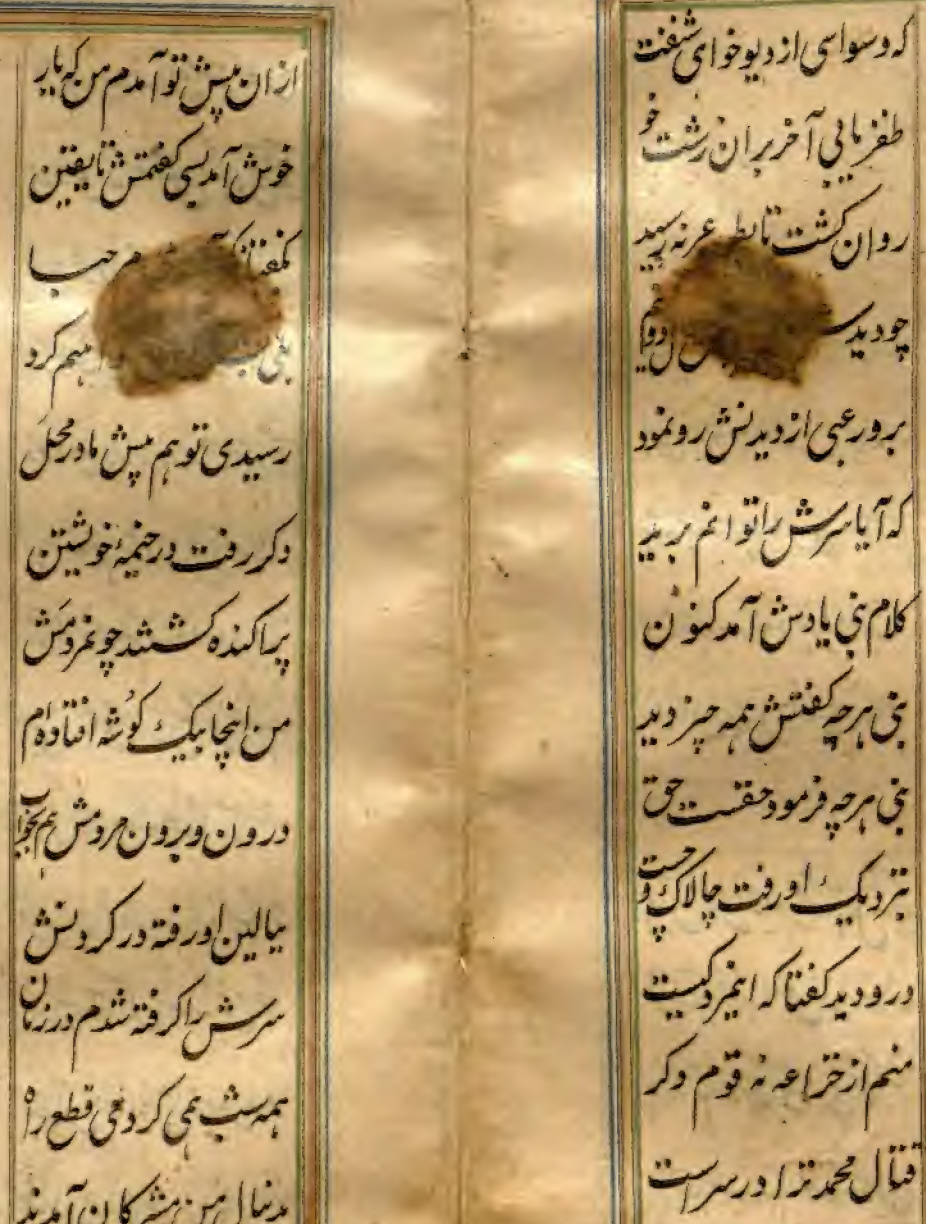 که وسواسی از دیو خوای شفت
ظفر یابی آخر بران زشت خو
روان کشت تا بطن عرنه رسید
چو دید
برو رعبی از دیدنش رو نمود
که آیا سرش را توانم برید
کلام نبی یادش آمد کنون
نبی هرچه کفتش همه چیز دید
نبی هرچه فرمود حقست حق
بنزدیک او رفت چالاک و چست
درو دید کفتا که اینمرد کیست
منم از خزاعه نه قوم دکر
قتال محمد ترا در سر است
ازان پیش تو آمدم من که یار
خوش آمد بسی کفتمش تا یقین
بکفتا
بلی هم کرد
رسیدی تو هم پیش ما در محل
دکر رفت در خیمهٔ خویشتن
پراکنده کشتند چو نمردمش
من اینجا بیک کوشه افتاده‌ام
درون و برون مردمش هم بخواب
ببالین او رفته در کردنش
سرش را کرفته شدم در زمان
همه شب همی کردمی قطع راه
بدنبال من مشرکان آمدند